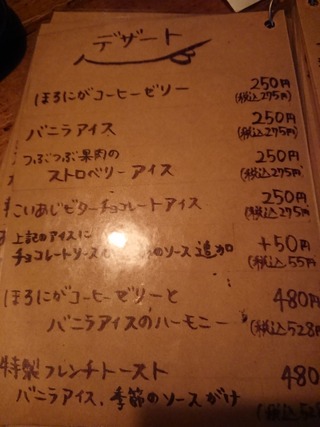 デザート
ほろにがコーヒーゼリー 250円
(税込275円)
バニラアイス 250円
(税込275円)
つぶつぶ果肉の
ストロベリーアイス 250円
(税込275円)
こいあじビターチョコレートアイス 250円
(税込275円)
上記のアイスに
チョコレートソース のソース追加 +50円
(税込55円
ほろにがコーヒーゼリーと 480円
バニラアイスのハーモニー (税込528円
特製フレンチトースト 480
バニラアイス、季節のソースがけ (税込52